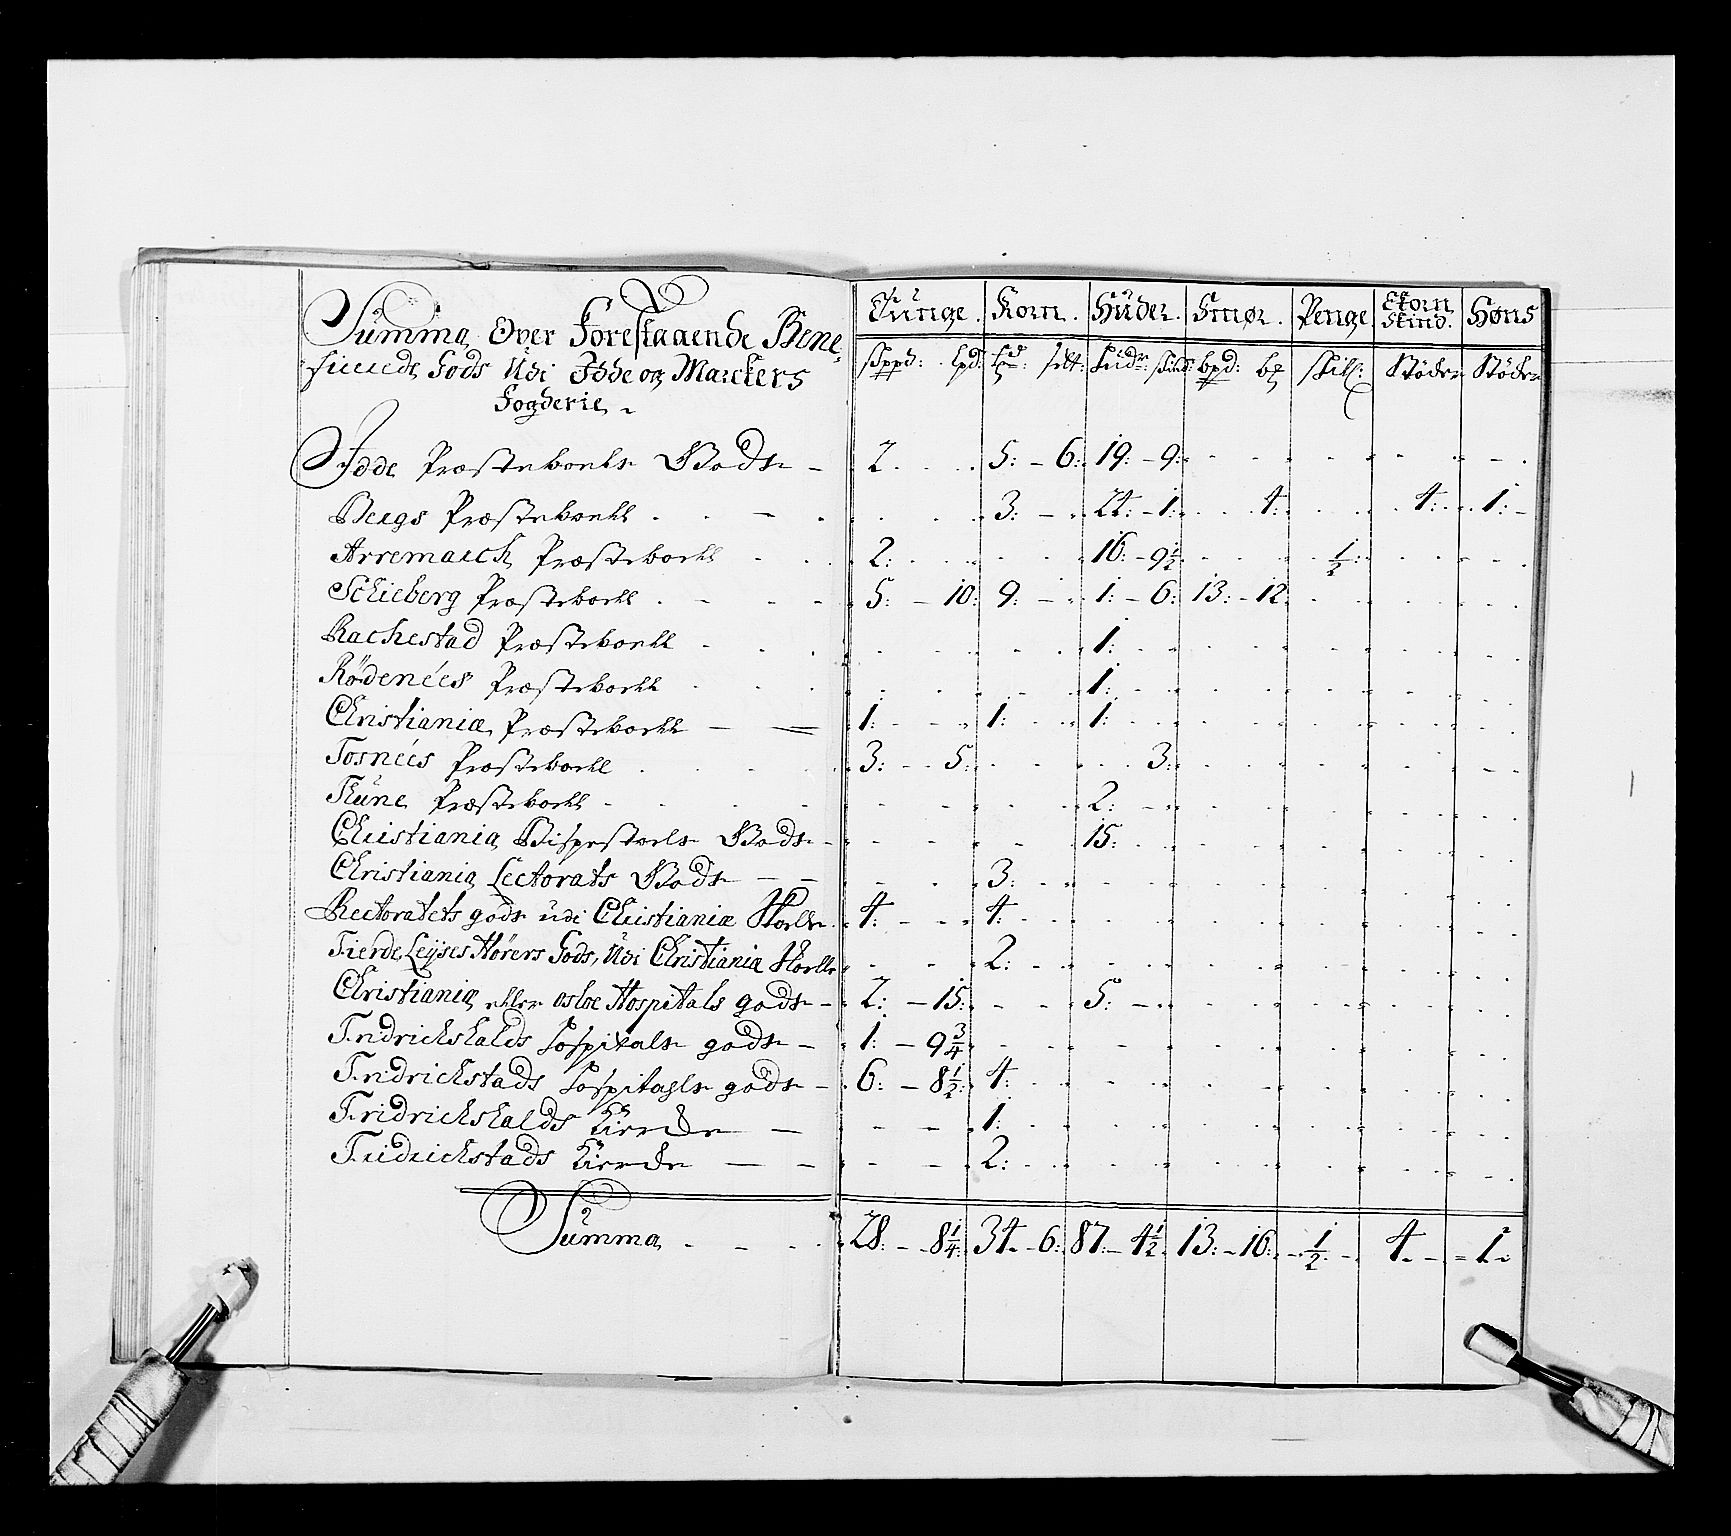 Summa Over Forestaaende Bene
ficerede Gods Udi Idde og Marckers
Fogderie
Tunge. Korn. Huder. Smør. Penge Ekorn Skind. Høns
Skppd: Lpd: Hudr: bpd: Skill: Stöder Stöder
Idde Præstebohls Gods - 2. 5: - 6: 19: - 9:
Bergs Præstebohl 3: 24: - 1: 4: 4: 1:
Arremarch Præstebohl 2: 16: - 9½ ½:
Schieberg Præstebohl 5: - 10: 9: 1: - 6: 13: - 12
Rachestad Præstebohl 1:
Rödenées Præstebohl 1:
Christiania Præstebohl 1: 1: 1:
Tosnées Præstebohl 3: 5: 3:
Thune Præstebohl 2:
Christiania Bispestoels Gods 15:
Christiania Lectorats Gods 3:
Rectoratets gods udi Christiania Skolle 4: 4:
Fierde Leyses Hörers Gods, Udi Christiania Skolle 2:
Christiania eller Osloe Hospitals gods - 2: - 15: 5:
Fridrichshalds Hospitals gods - 1: - 9¾
Fridrichstads Hospitagls gods - 6: - 8½: 4:
Fridrichshalds Kircke 1:
Fridrichstads Kircke 2:
Summa 28 - 8¼: 34 - 6: 87: - 4½ 13: - 16: ½ 4 1